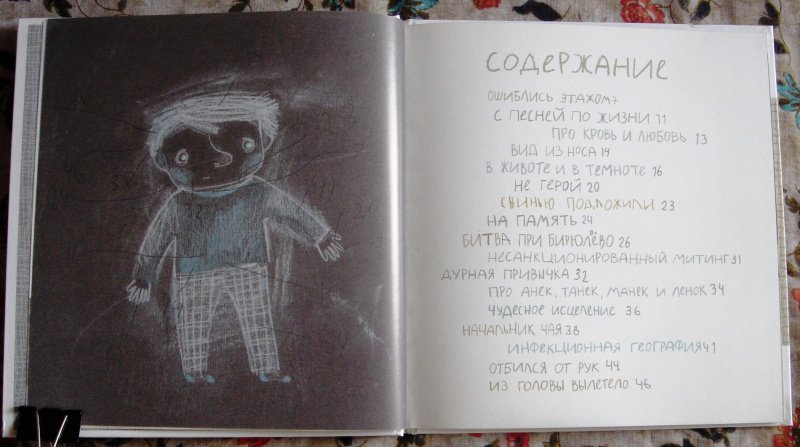 СОДЕРЖАНИЕ
ОШИБЛИСЬ ЭТАЖОМ 7
С ПЕСНЕЙ ПО ЖИЗНИ 11
ПРО КРОВЬ И ЛЮБОВЬ 13
ВИД ИЗ НОСА 14
В ЖИВОТЕ И В ТЕМНОТЕ 16
НЕ ГЕРОЙ 20
СВИНЬЮ ПОДЛОЖИЛИ 23
НА ПАМЯТЬ 24
БИТВА ПРИ БИРЮЛЁВО 26
НЕСАНКЦИОНИРОВАННЫЙ МИТИНГ 31
ДУРНАЯ ПРИВЫЧКА 32
ПРО АНЕК, ТАНЕК, МАНЕК И ЛЕНОК 34
ЧУДЕСНОЕ ИСЦЕЛЕНИЕ 36
НАЧАЛЬНИК ЧАЯ 38
ИНФЕКЦИОННАЯ ГЕОГРАФИЯ 41
ОТБИЛСЯ ОТ РУК 44
ИЗ ГОЛОВЫ ВЫЛЕТЕЛО 46